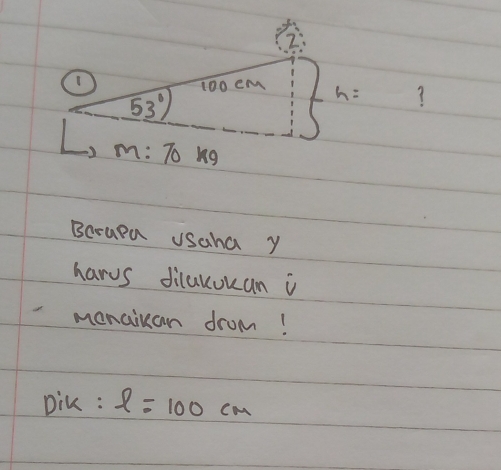 2
1
100 cm
h = ?
53°
m : 70 kg
Berapa usaha y
harus dilakukan u
menaikan drum !
Dik : l = 100 cm